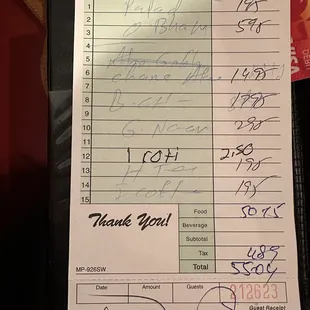 1 Papad 195
2
3 Bhatu 595
4
5 Aloo Gobhi
6 chane Aloo 1495
7
8 B.CH - 1795
9
10 G. Naan 295
11
12 1 roti 2,50
13 195
14 I coff 195
15
Thank You!
Food 5075
Beverage
Subtotal
Tax 489
MP-926SW Total 5504
Date Amount Guests 212623
Guest Receipt
VISA
DEBIT